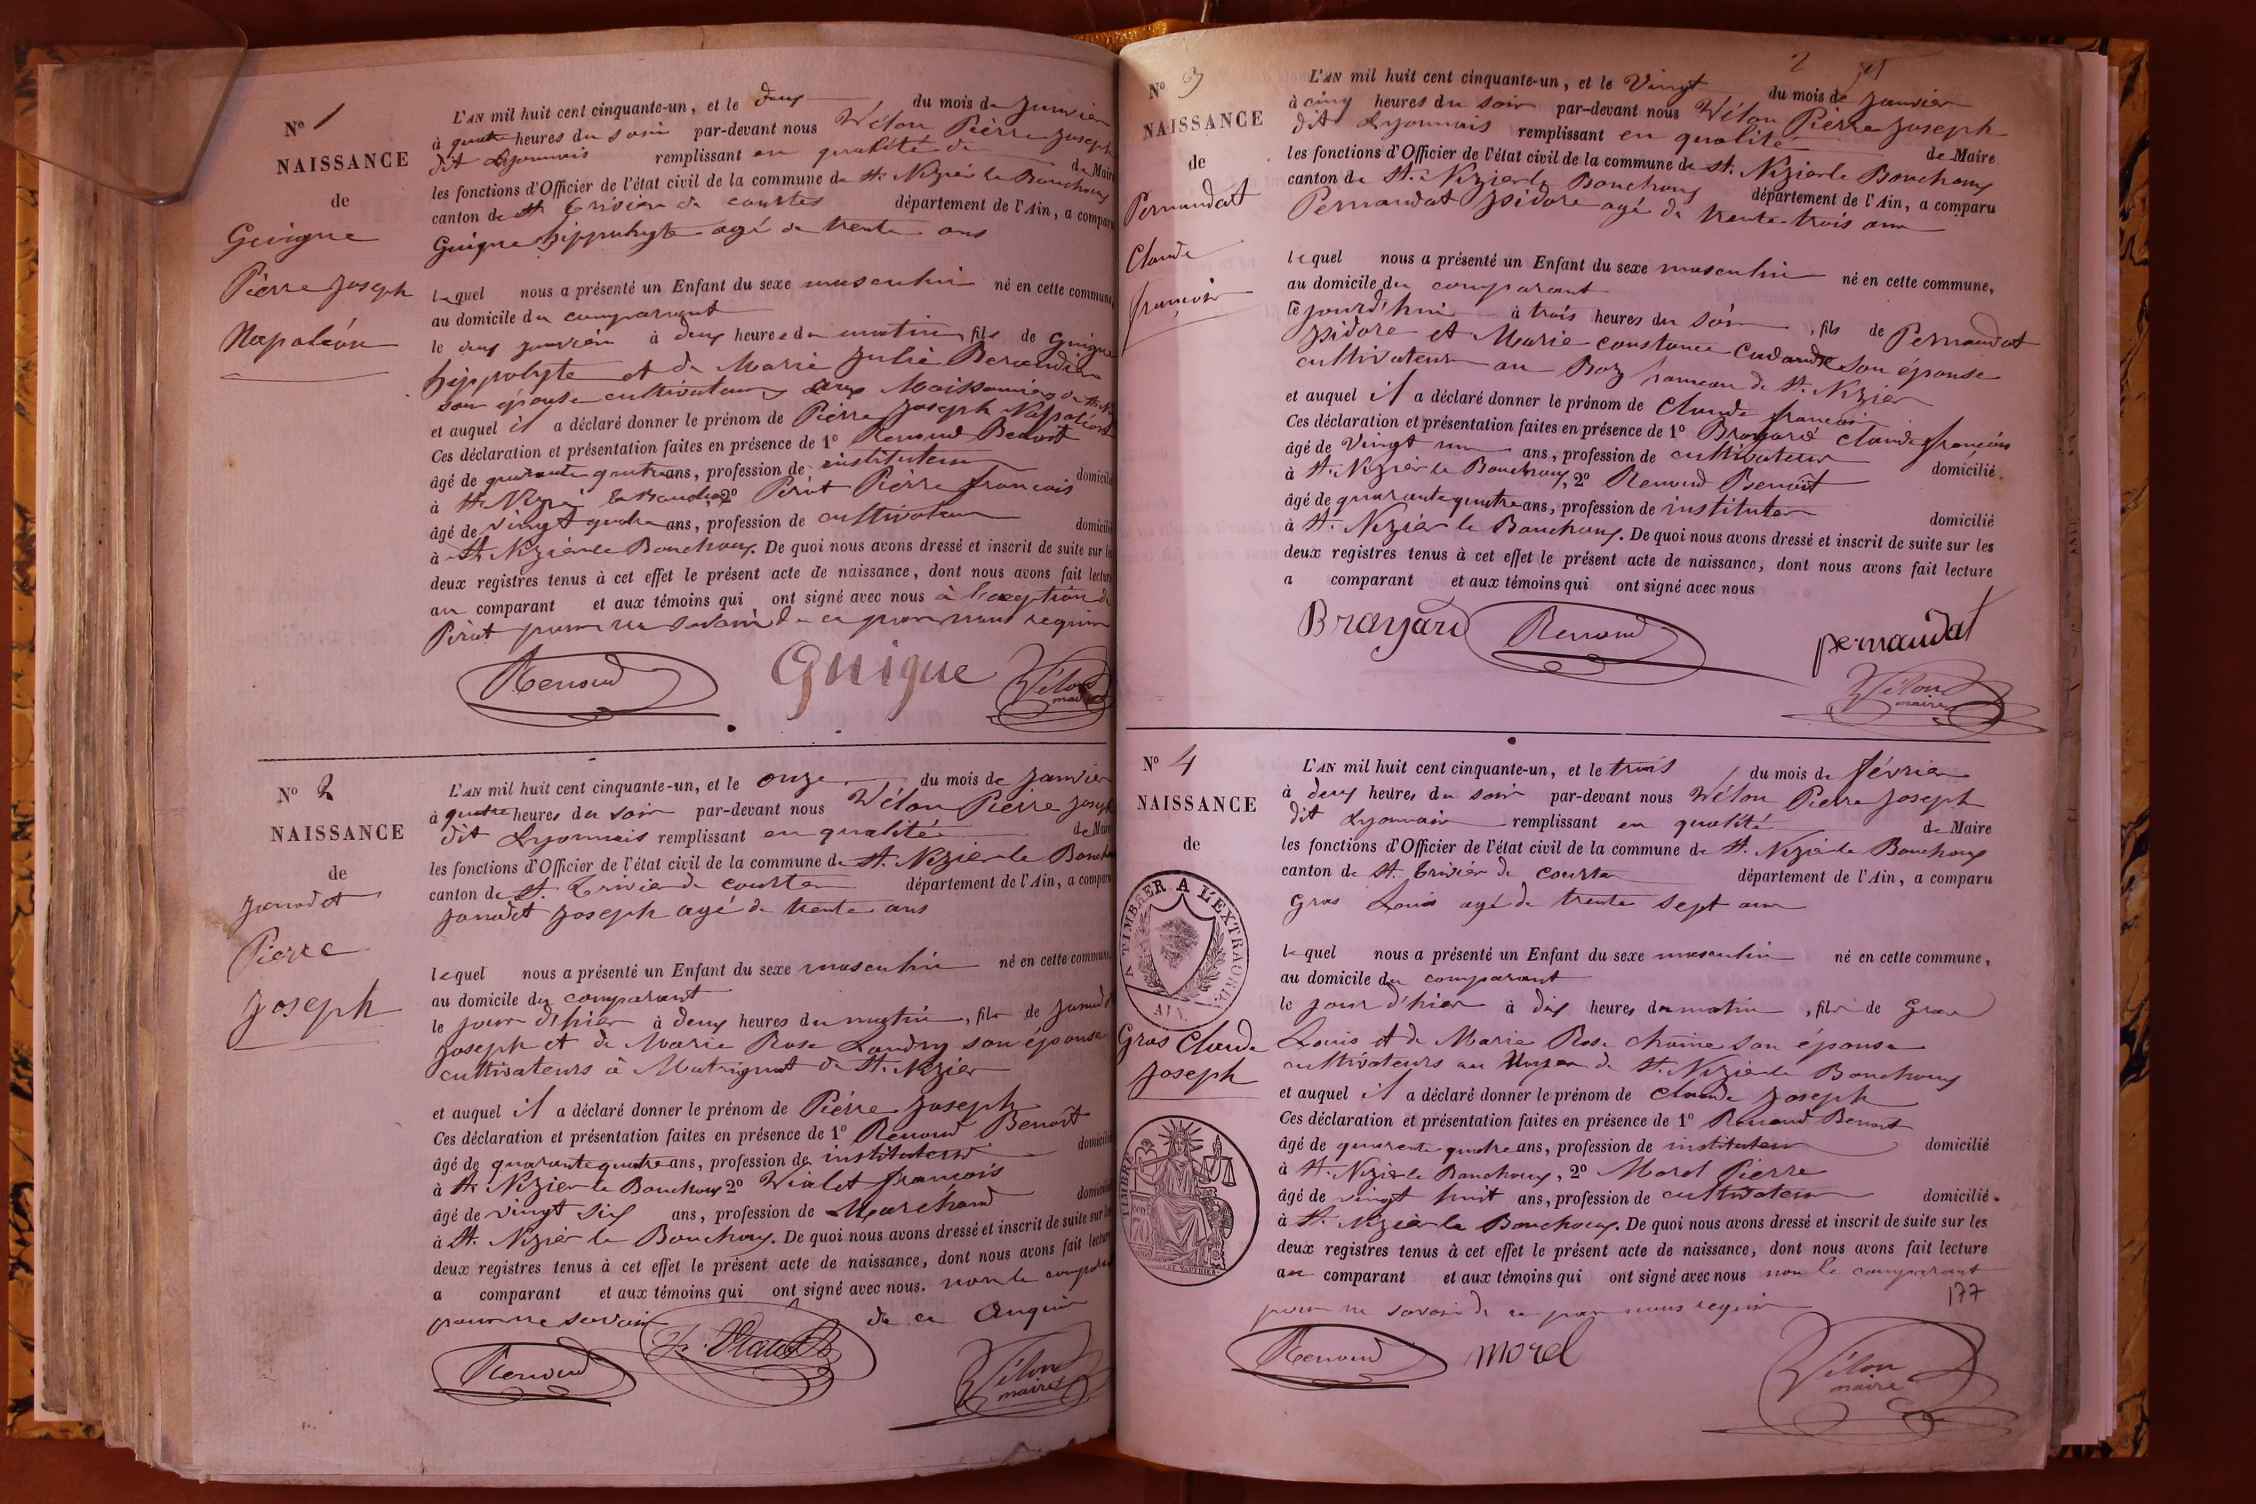 N° 1
NAISSANCE
de
Guigue
Pierre Joseph
Napoléon
L'AN mil huit cent cinquante-un, et le deux du mois de Janvier
à quatre heures du soir par-devant nous Vélon Pierre Joseph
dit Lyonnais remplissant en qualité de de Maire
les fonctions d'Officier de l'état civil de la commune de St. Nizier le Bouchoux
canton de St Trivier de courtes département de l'Ain, a comparu
Guigue hippolyte agé de trente ans
lequel nous a présenté un Enfant du sexe masculin né en cette commune,
au domicile du comparant
le deux janvier à deux heures du matin fils de Guigue
hippolyte et de Marie Julie
son épouse cultivateurs aux
et auquel il a déclaré donner le prénom de Pierre Joseph Napoléon
Ces déclaration et présentation faites en présence de 1° Renoud Benoit
âgé de quarante quatre ans, profession de instituteur domicilié
à St. Nizier le Bouchoux, 2° Pirat Pierre françois
âgé de vingt quatre ans, profession de cultivateur domicilié
à St Nizier le Bouchoux. De quoi nous avons dressé et inscrit de suite sur les
deux registres tenus à cet effet le présent acte de naissance, dont nous avons fait lecture
au comparant et aux témoins qui ont signé avec nous à l'exception de
Pirat pour ne savoir de ce par nous requis
Renoud Guigue Vélon
maire
N° 2
NAISSANCE
de
Janodet
Pierre
Joseph
L'AN mil huit cent cinquante-un, et le onze du mois de Janvier
à quatre heures du soir par-devant nous Vélon Pierre Joseph
dit Lyonnais remplissant en qualité de Maire
les fonctions d'Officier de l'état civil de la commune de St. Nizier le Bouchoux
canton de St. Trivier de courtes département de l'Ain, a comparu
Janodet Joseph agé de trente ans
lequel nous a présenté un Enfant du sexe masculin né en cette commune,
au domicile du comparant
le jour d'hier à deux heures du matin, fils de Janodet
Joseph et de Marie Rose Landry son épouse
cultivateurs à Matrignat de St. Nizier
et auquel il a déclaré donner le prénom de Pierre Joseph
Ces déclaration et présentation faites en présence de 1° Renoud Benoit
âgé de quarante quatre ans, profession de instituteur domicilié
à St Nizier le Bouchoux 2° Vialet françois
âgé de vingt six ans, profession de Marchand domicilié
à St. Nizier le Bouchoux. De quoi nous avons dressé et inscrit de suite sur les
deux registres tenus à cet effet le présent acte de naissance, dont nous avons fait lecture
a comparant et aux témoins qui ont signé avec nous. non le comparant
pour ne savoir de ce enquis
Renoud Vélon
maire
2
N° 3
NAISSANCE
de
Pernaudat
Claude
françois
L'AN mil huit cent cinquante-un, et le Vingt du mois de Janvier
à cinq heures du soir par-devant nous Vélon Pierre Joseph
dit Lyonnais remplissant en qualité de Maire
les fonctions d'Officier de l'état civil de la commune de St. Nizier le Bouchoux
canton de St. Nizier le Bouchoux département de l'Ain, a comparu
Pernaudat Isidore agé de trente-trois ans
lequel nous a présenté un Enfant du sexe masculin né en cette commune,
au domicile du comparant
le jourd'hui à trois heures du soir, fils de Pernaudat
Isidore et Marie constance son épouse
cultivateurs au hameau de St. Nizier
et auquel il a déclaré donner le prénom de Claude françois
Ces déclaration et présentation faites en présence de 1° Brayard Claude françois
âgé de Vingt un ans, profession de cultivateur domicilié.
à St. Nizier le Bouchoux, 2° Renoud Benoit
âgé de quarante quatre ans, profession de instituteur domicilié
à St. Nizier le Bouchoux. De quoi nous avons dressé et inscrit de suite sur les
deux registres tenus à cet effet le présent acte de naissance, dont nous avons fait lecture
a comparant et aux témoins qui ont signé avec nous
Brayard Renoud pernaudat
Vélon
maire
N° 4
NAISSANCE
de
A TIMBRER A L'EXTRAORD.
AIN.
Gros Claude
Joseph
TIMBRE
L'AN mil huit cent cinquante-un, et le trois du mois de février
à deux heures du soir par-devant nous Vélon Pierre Joseph
dit Lyonnais remplissant en qualité de Maire
les fonctions d'Officier de l'état civil de la commune de St. Nizier le Bouchoux
canton de St. Trivier de courtes département de l'Ain, a comparu
Gros Louis agé de trente sept ans
lequel nous a présenté un Enfant du sexe masculin né en cette commune,
au domicile du comparant
le jour d'hier à dix heures du matin, fils de Gros
Louis et de Marie Rose son épouse
cultivateurs au de St. Nizier le Bouchoux
et auquel il a déclaré donner le prénom de Claude Joseph
Ces déclaration et présentation faites en présence de 1° Renoud Benoit
âgé de quarante quatre ans, profession de instituteur domicilié
à St. Nizier le Bouchoux, 2° Morel Pierre
âgé de vingt huit ans, profession de cultivateur domicilié.
à St. Nizier le Bouchoux. De quoi nous avons dressé et inscrit de suite sur les
deux registres tenus à cet effet le présent acte de naissance, dont nous avons fait lecture
au comparant et aux témoins qui ont signé avec nous non le comparant
pour ne savoir de ce par nous requis
177
Renoud morel Vélon
maire